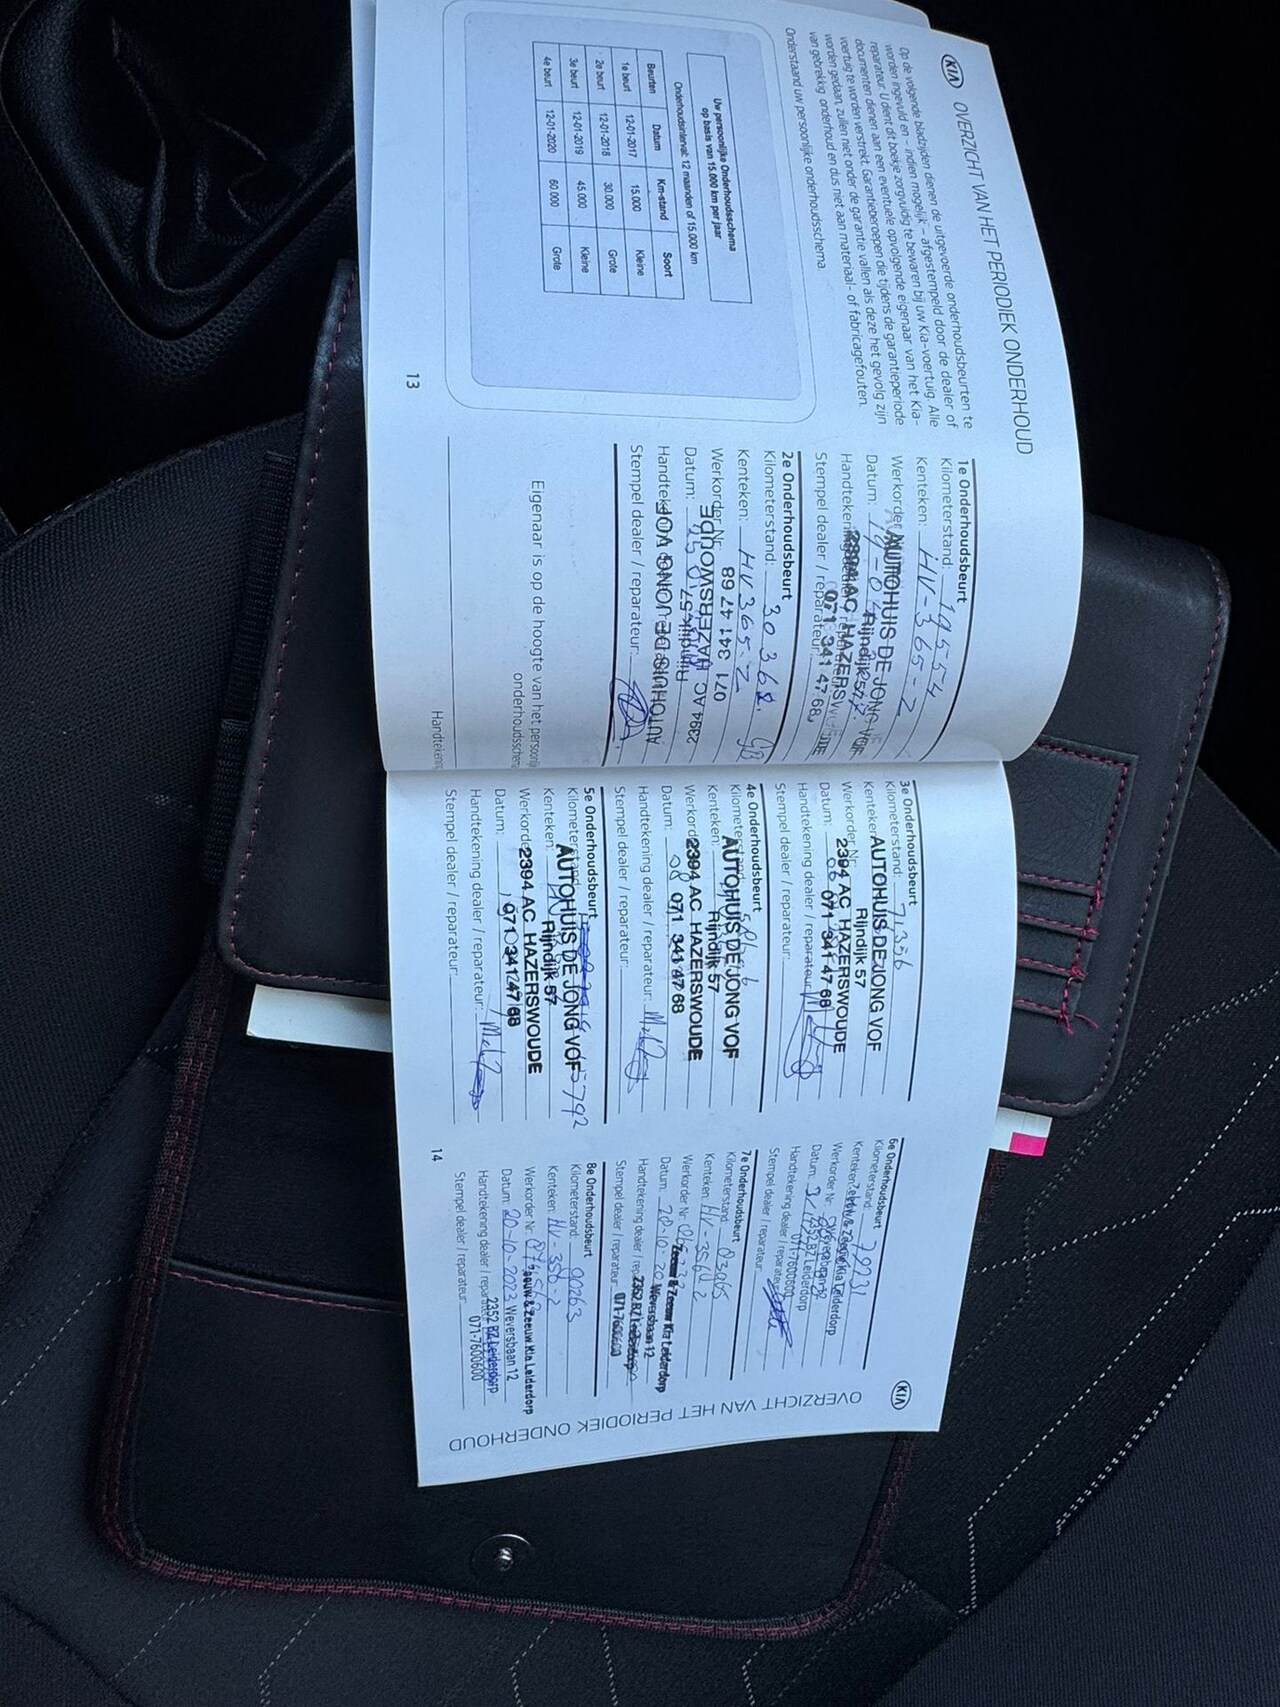 KIA OVERZICHT VAN HET PERIODIEK ONDERHOUD
Op de volgende bladzijden dienen de uitgevoerde onderhoudsbeurten te
worden ingevuld en - indien mogelijk - afgestempeld door de dealer of
reparateur. U dient dit boekje zorgvuldig te bewaren bij uw Kia-voertuig. Alle
documenten dienen aan een eventuele opvolgende eigenaar van het Kia-
voertuig te worden verstrekt. Garantieberoepen die tijdens de garantieperiode
worden gedaan, zullen niet onder de garantie vallen als deze het gevolg zijn
van gebrekkig onderhoud en dus niet aan materiaal- of fabricagefouten.
Onderstaand uw persoonlijke onderhoudsschema
Uw persoonlijke Onderhoudsschema
op basis van 15.000 km per jaar
Onderhoudsinterval: 12 maanden of 15.000 km
Beurten Datum Km-stand Soort
1e beurt 12-01-2017 15.000 Kleine
2e beurt 12-01-2018 30.000 Grote
3e beurt 12-01-2019 45.000 Kleine
4e beurt 12-01-2020 60.000 Grote
13
1e Onderhoudsbeurt
Kilometerstand: 19554
Kenteken: HV-365-Z
Werkorder
Datum:
Handtekening
Stempel dealer / reparateur:
AUTOHUIS DE JONG VOF
Rijndijk 57
2394 AC HAZERSWOUDE
071 341 47 68
2e Onderhoudsbeurt
Kilometerstand: 30368
Kenteken: HV365-Z
Werkorder Nr.
Datum:
Handtekening
Stempel dealer / reparateur:
AUTOHUIS DE JONG VOF
Rijndijk 57
2394 AC HAZERSWOUDE
071 341 47 68
Eigenaar is op de hoogte van het persoonlij
onderhoudsschem
Handtekening
3e Onderhoudsbeurt
Kilometerstand:
Kenteken:
Werkorder Nr.:
Datum:
Handtekening dealer / reparateur:
Stempel dealer / reparateur:
AUTOHUIS DE JONG VOF
Rijndijk 57
2394 AC HAZERSWOUDE
071 341 47 68
4e Onderhoudsbeurt
Kilometerstand:
Kenteken:
Werkorder
Datum:
Handtekening dealer / reparateur:
Stempel dealer / reparateur:
AUTOHUIS DE JONG VOF
Rijndijk 57
2394 AC HAZERSWOUDE
071 341 47 68
5e Onderhoudsbeurt
Kilometerstand:
Kenteken:
Werkorder
Datum:
Handtekening dealer / reparateur:
Stempel dealer / reparateur:
AUTOHUIS DE JONG VOF
Rijndijk 57
2394 AC HAZERSWOUDE
071 341 47 68
6e Onderhoudsbeurt
Kilometerstand:
Kenteken:
Werkorder Nr.
Datum:
Handtekening dealer / reparateur:
Stempel dealer / reparateur:
Zeeuw & Zeeuw Kia Leiderdorp
2352 BZ Leiderdorp
071-7600600
7e Onderhoudsbeurt
Kilometerstand:
Kenteken:
Werkorder Nr.
Datum:
Handtekening dealer / rep
Stempel dealer / reparateur:
Zeeuw & Zeeuw Kia Leiderdorp
Weversbaan 12
2352 BZ Leiderdorp
071-7600600
8e Onderhoudsbeurt
Kilometerstand: 90263
Kenteken:
Werkorder Nr.:
Datum: 20-10-2023
Handtekening dealer / reparateur
Stempel dealer / reparateur:
Zeeuw & Zeeuw Kia Leiderdorp
Weversbaan 12
2352 BZ Leiderdorp
071-7600600
14
OVERZICHT VAN HET PERIODIEK ONDERHOUD KIA